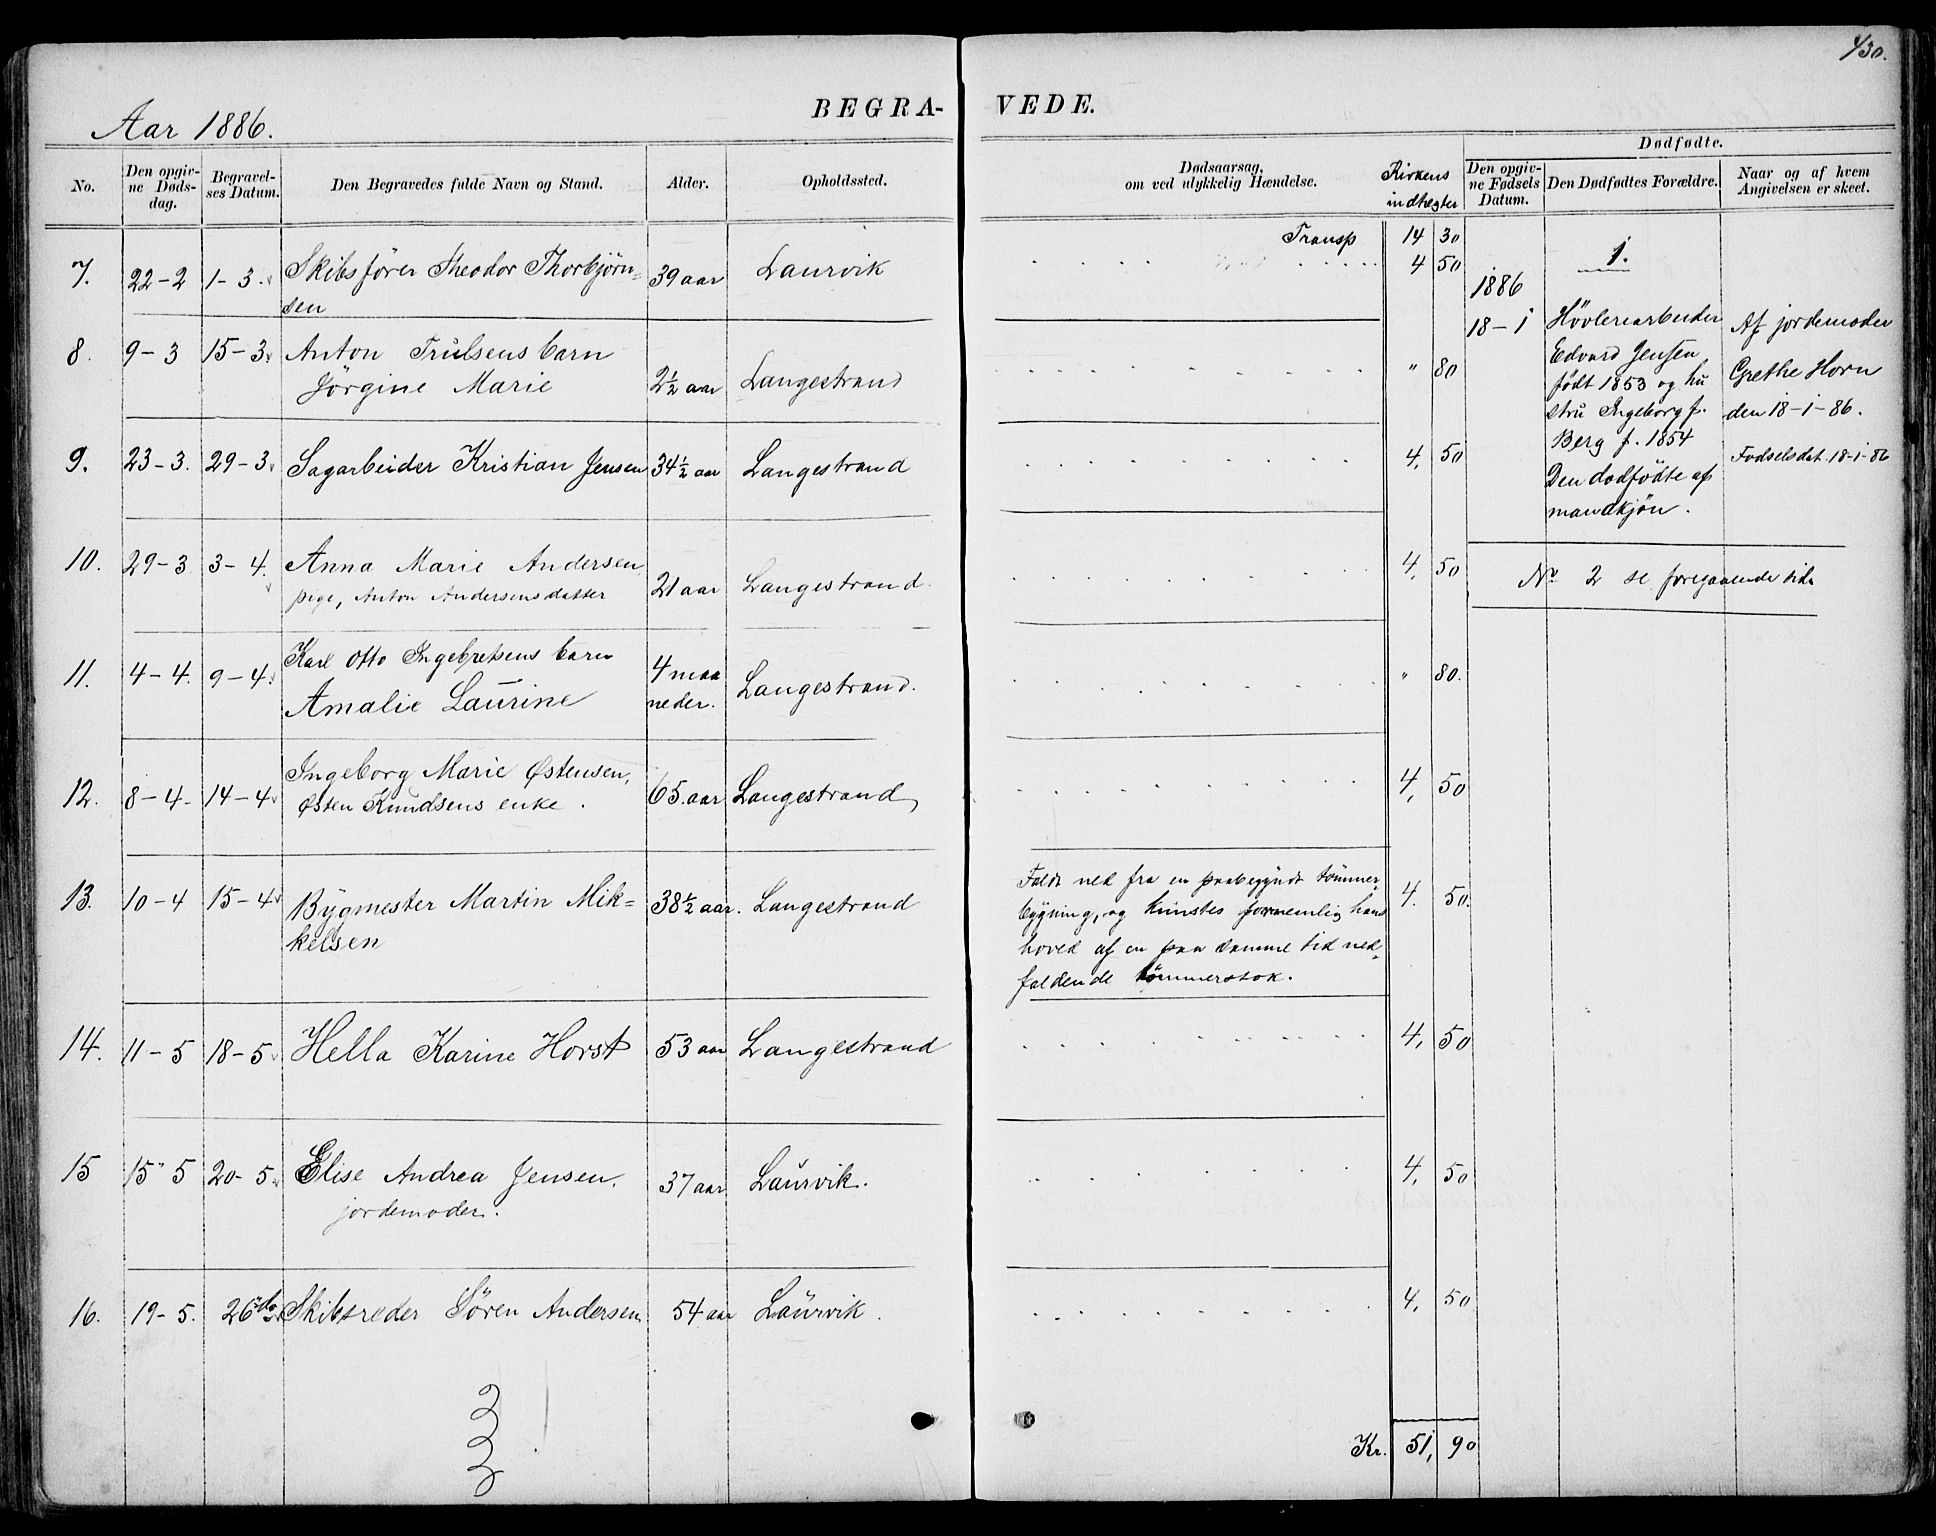 430.
Aar 1886.
BEGRA-
VEDE.
No.
Den opgiv-
ne Døds-
dag.
Begravel-
ses Datum.
Den Begravedes fulde Navn og Stand.
Alder.
Opholdssted.
Dødsaarsag,
om ved ulykkelig Hændelse.
Kirkens
indtegter
Dødfødte.
Den opgiv-
ne Fødsels
Datum.
Den Dødfødtes Forældre.
Naar og af hvem
Angivelsen er skeet.
Transp 14 30
7. 22-2 1-3. Skibsfører Theodor Thorbjørn= 39 aar Laurvik 4 50
sen
8. 9-3 15-3 Anton Trulsens barn
Jörgine Marie 2½ aar Langestrand " 80
9. 23-3. 29-3 Sagarbeider Kristian Jensen 34½ aar Langestrand 4, 50
10. 29-3 3-4. Anna Marie Andersen
pige, Anton Andersens datter 21 aar Langestrand. 4, 50
11. 4-4. 9-4. Karl Otto Ingebretsens barn 4 maa
Amalie Laurine neder. Langestrand. " 80.
12. 8-4. 14-4 Ingeborg Marie Østensen,
Østen Knudsens enke. 65. aar Langestrand, 4, 50
13. 10-4 15-4 Bygmester Martin Mik= 38½ aar. Langestrand 4. 50.
kelsen
Faldt ned fra en paabegyndt tømmer-
bygning, og knustes fornemlig hans
hoved af en paa samme tid ned=
faldende tømmerstok.
14. 11-5 18-5 Hella Karine Horst 53 aar Langestrand 4, 50
15 15-5 20-5 Elise Andrea Jensen, 37 aar Laurvik. 4, 50
jordemoder.
16. 19-5. 26 Skibsreder Sören Andersen 54 aar Laurvik. 4, 50
Kr. 51, 90
1.
1886
18-1
Hövleriarbeider
Edvard Jensen
født 1853 og hu
stru Ingeborg f.
Berg f. 1854
Den dødfödte af
mandkjön.
Af jordemoder
Grethe Horn
den 18-1-86.
Fødselsdat. 18-1-86
No 2 se foregaaende side